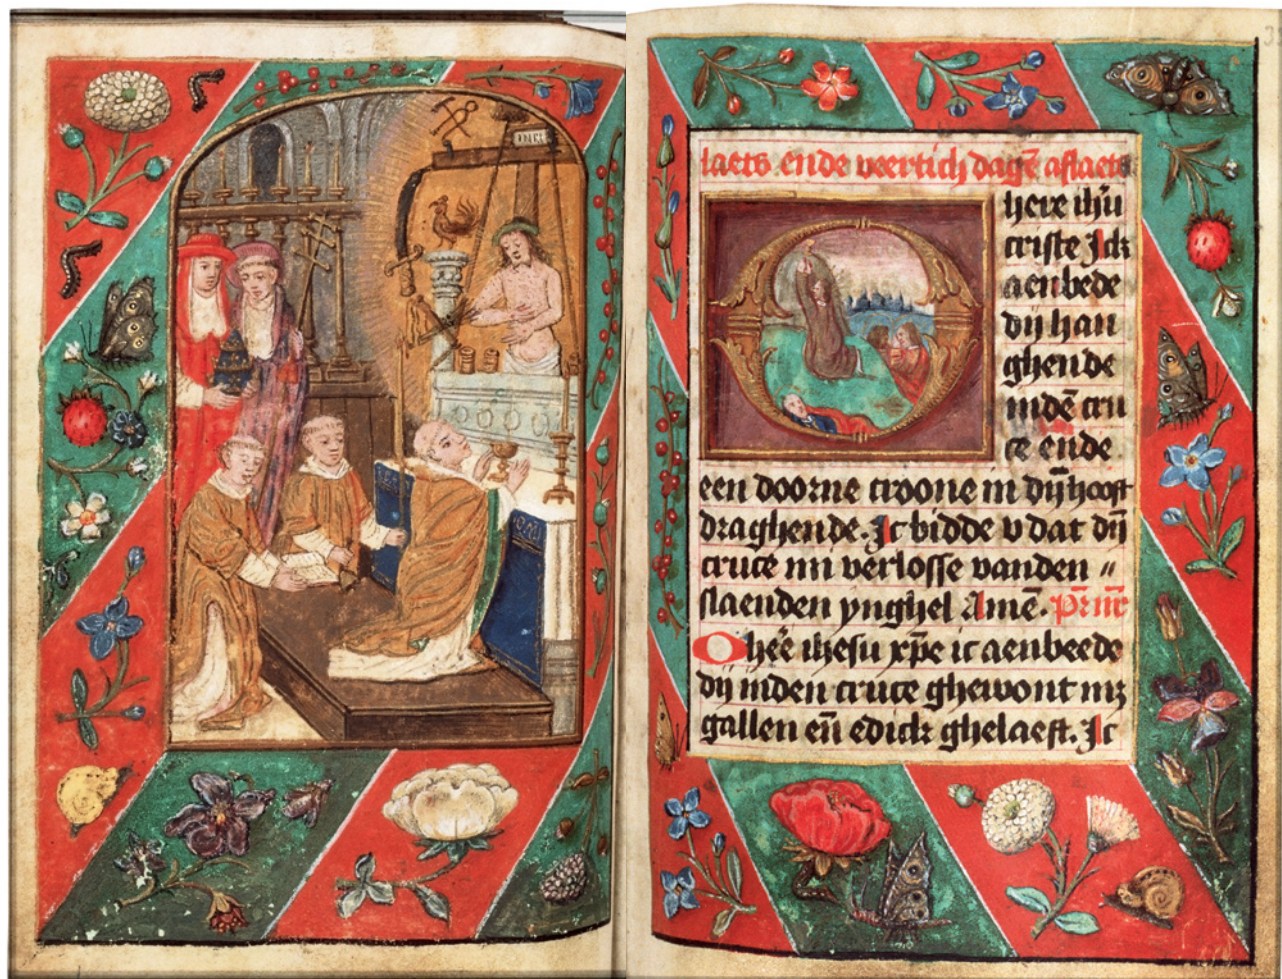 INRI
laets ende veertich dagē aflaets
here ihū
criste Ick
aenbede
dij han
ghende
inden̄ cru
ce ende
een doorne croone in dij̄ hooft
draghende. Ic bidde v dat dij̄
cruce mi verlosse vanden "
slaenden ynghel Amē. pr̄ nr̄
O hēe ihesu xp̄e ic aenbeede
dij inden cruce ghewont mz
gallen eñ edick ghelaeft. Ic